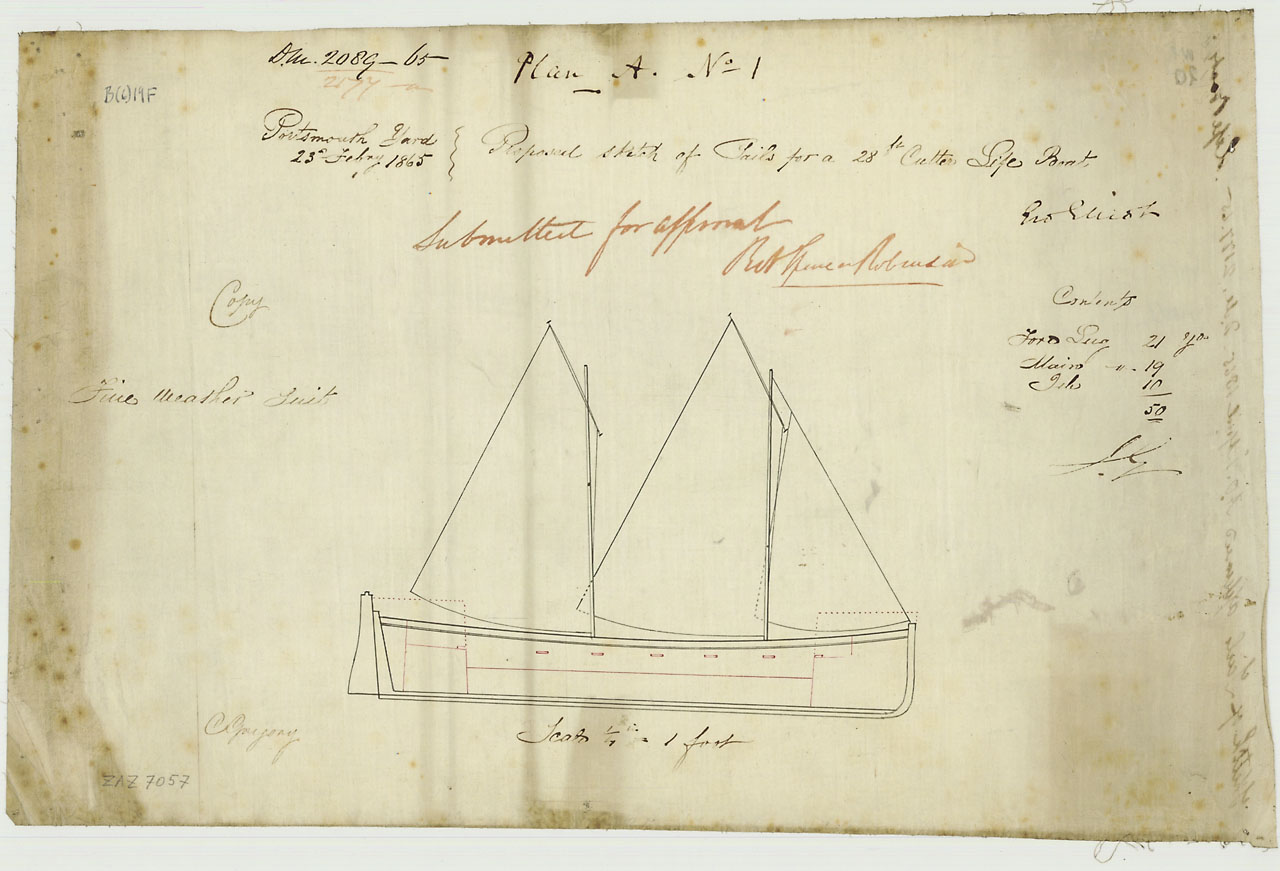 D.W. 2089-65
2177
Plan A. No 1
B(6)19F
Portsmouth Yard
23d Febry 1865
Proposed sketch of Sails for a 28ft Cutter Life Boat
Geo Elliot
Submitted for approval
Robt Spencer Robinson
Copy
Contents
Fore Lug 21 Yds
Main " 19
Jib 10
50
Fine Weather Suit
C Gregory
Scale = 1 foot
ZAZ 7057